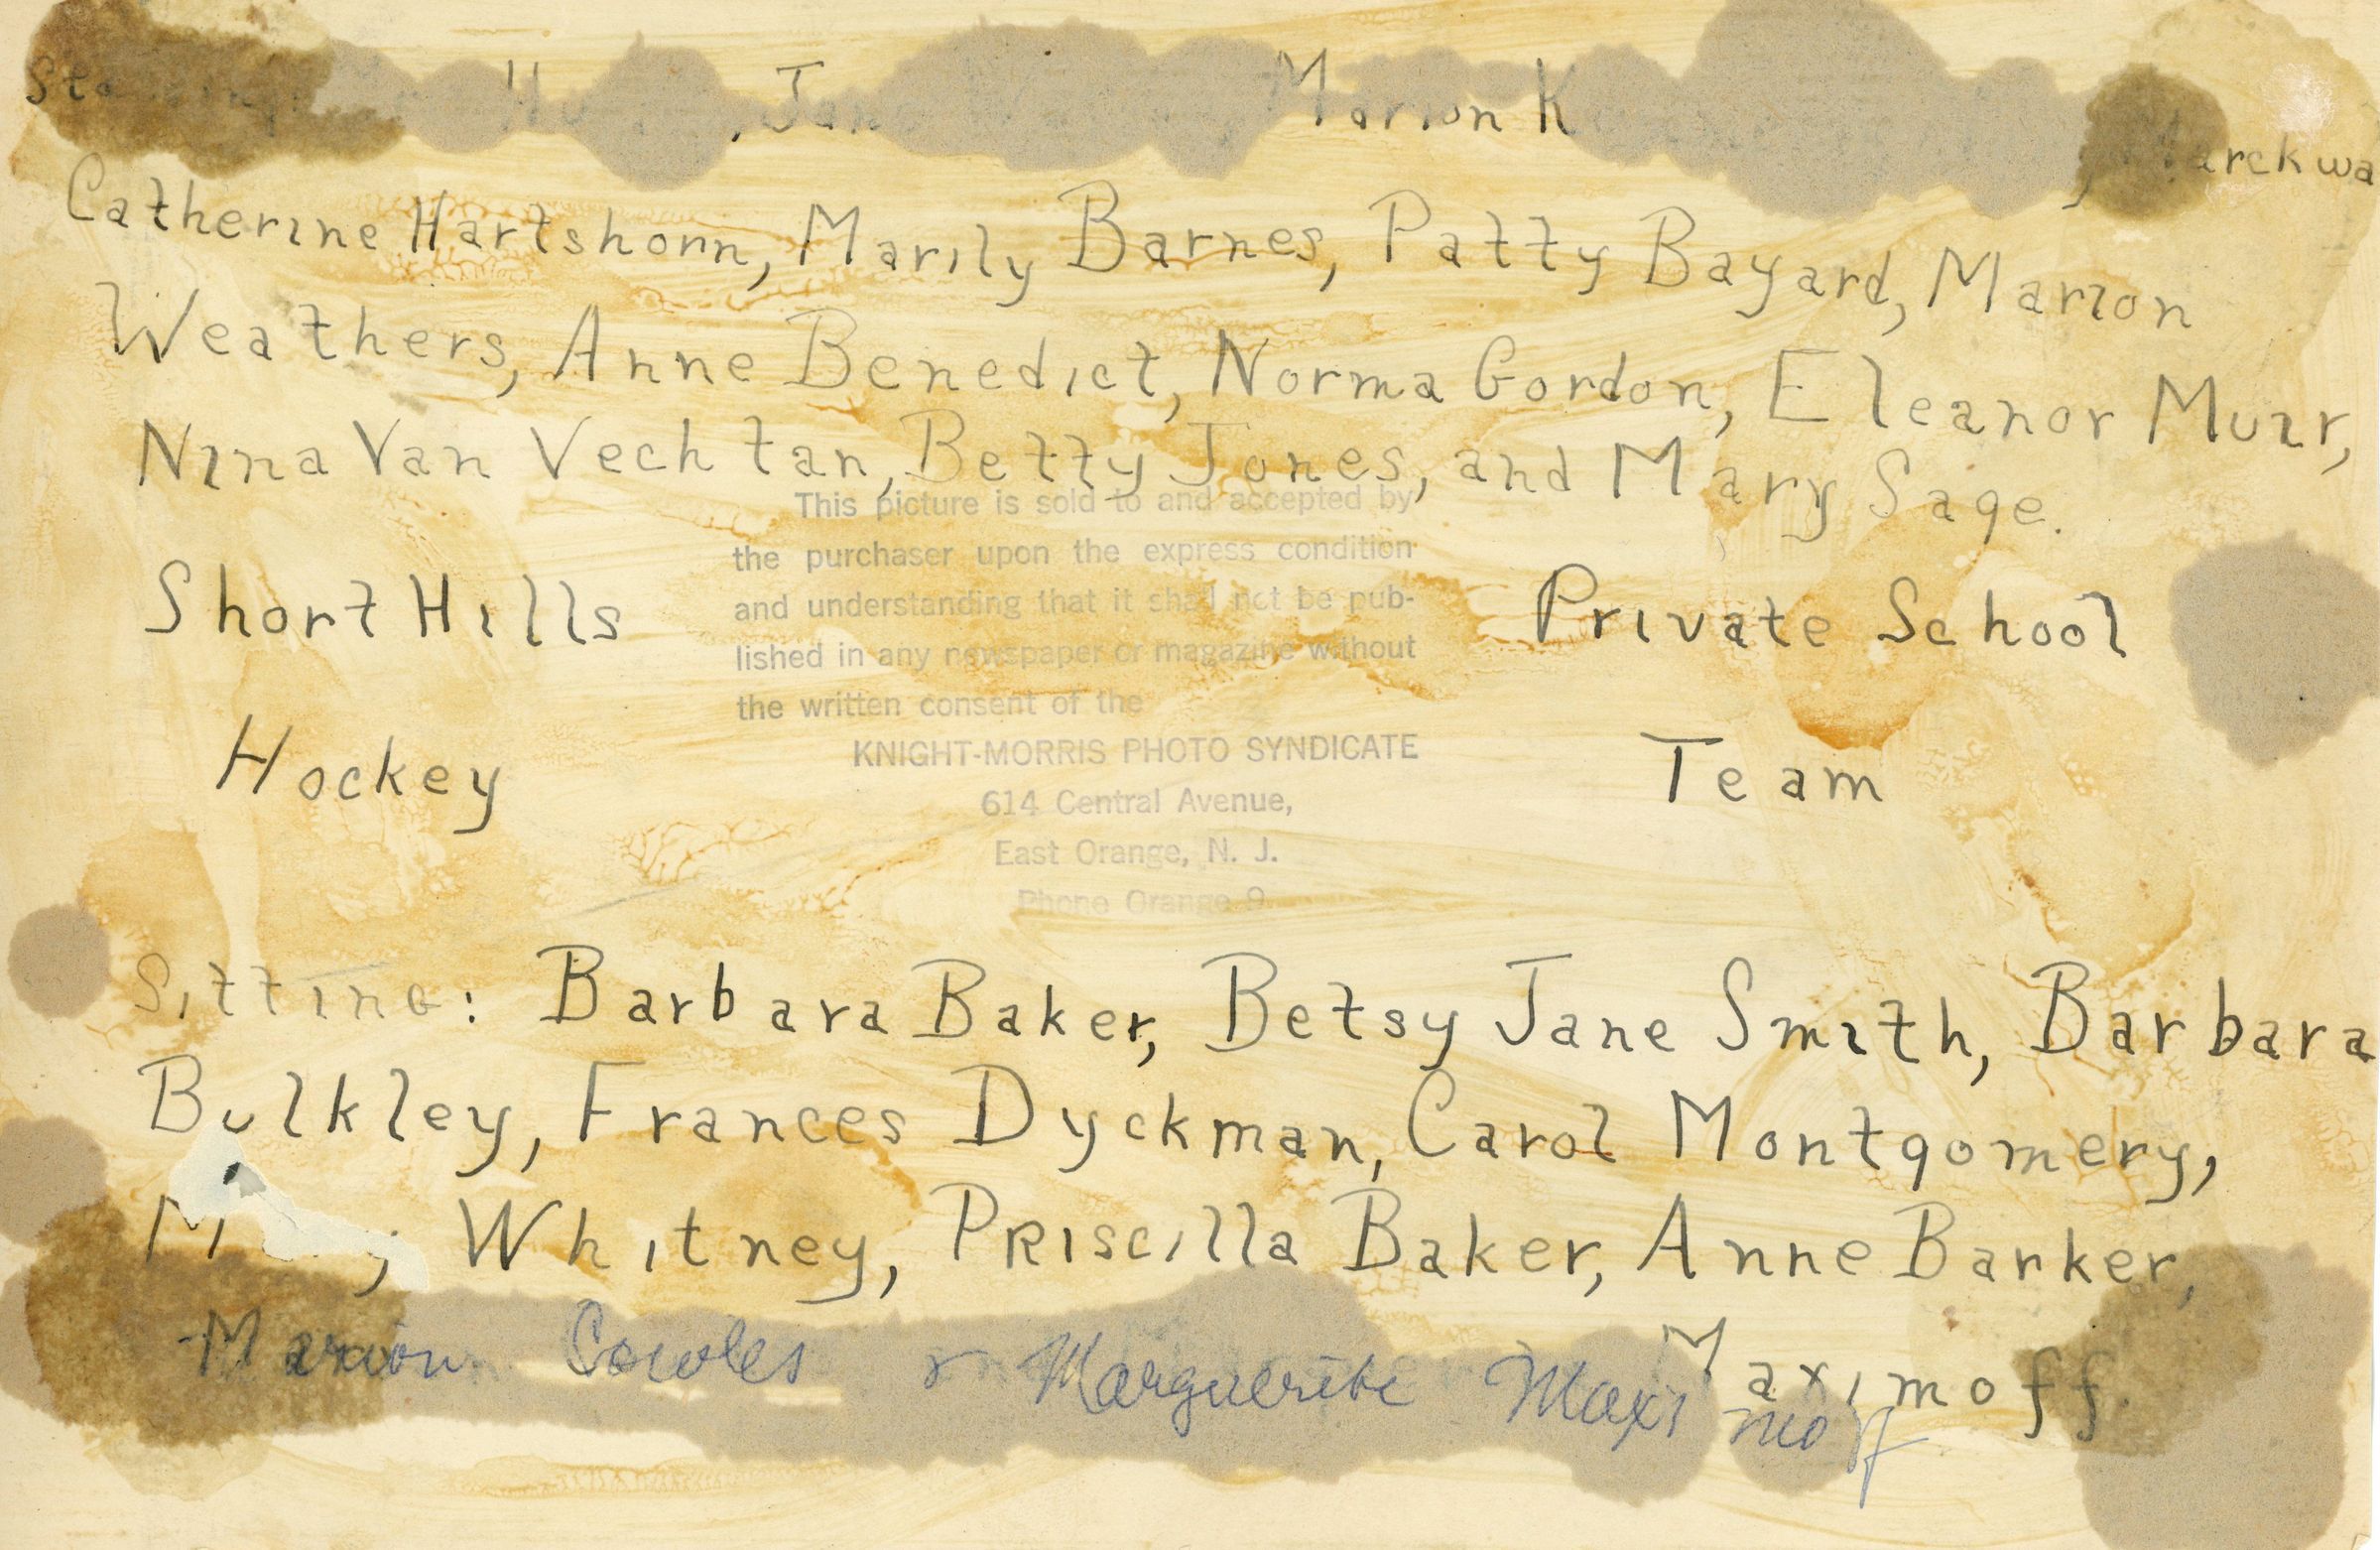 Jane Marion
Catherine Hartshorn, Marily Barnes, Patty Bayard, Marion
Weathers, Anne Benedict, Norma Gordon, Eleanor Muir,
Nina Van Vechtan, Betty Jones, and Mary Sage.
This picture is sold to and accepted by
the purchaser upon the express condition
and understanding that it shall not be pub-
lished in any newspaper or magazine without
the written consent of the
KNIGHT-MORRIS PHOTO SYNDICATE
614 Central Avenue,
East Orange, N. J.
Phone Orange 9
Short Hills Private School
Hockey Team
Sitting: Barbara Baker, Betsy Jane Smith, Barbara
Bulkley, Frances Dyckman, Carol Montgomery,
Whitney, Priscilla Baker, Anne Barker,
Maximoff.
Marion Cowles & Marguerite Maximoff